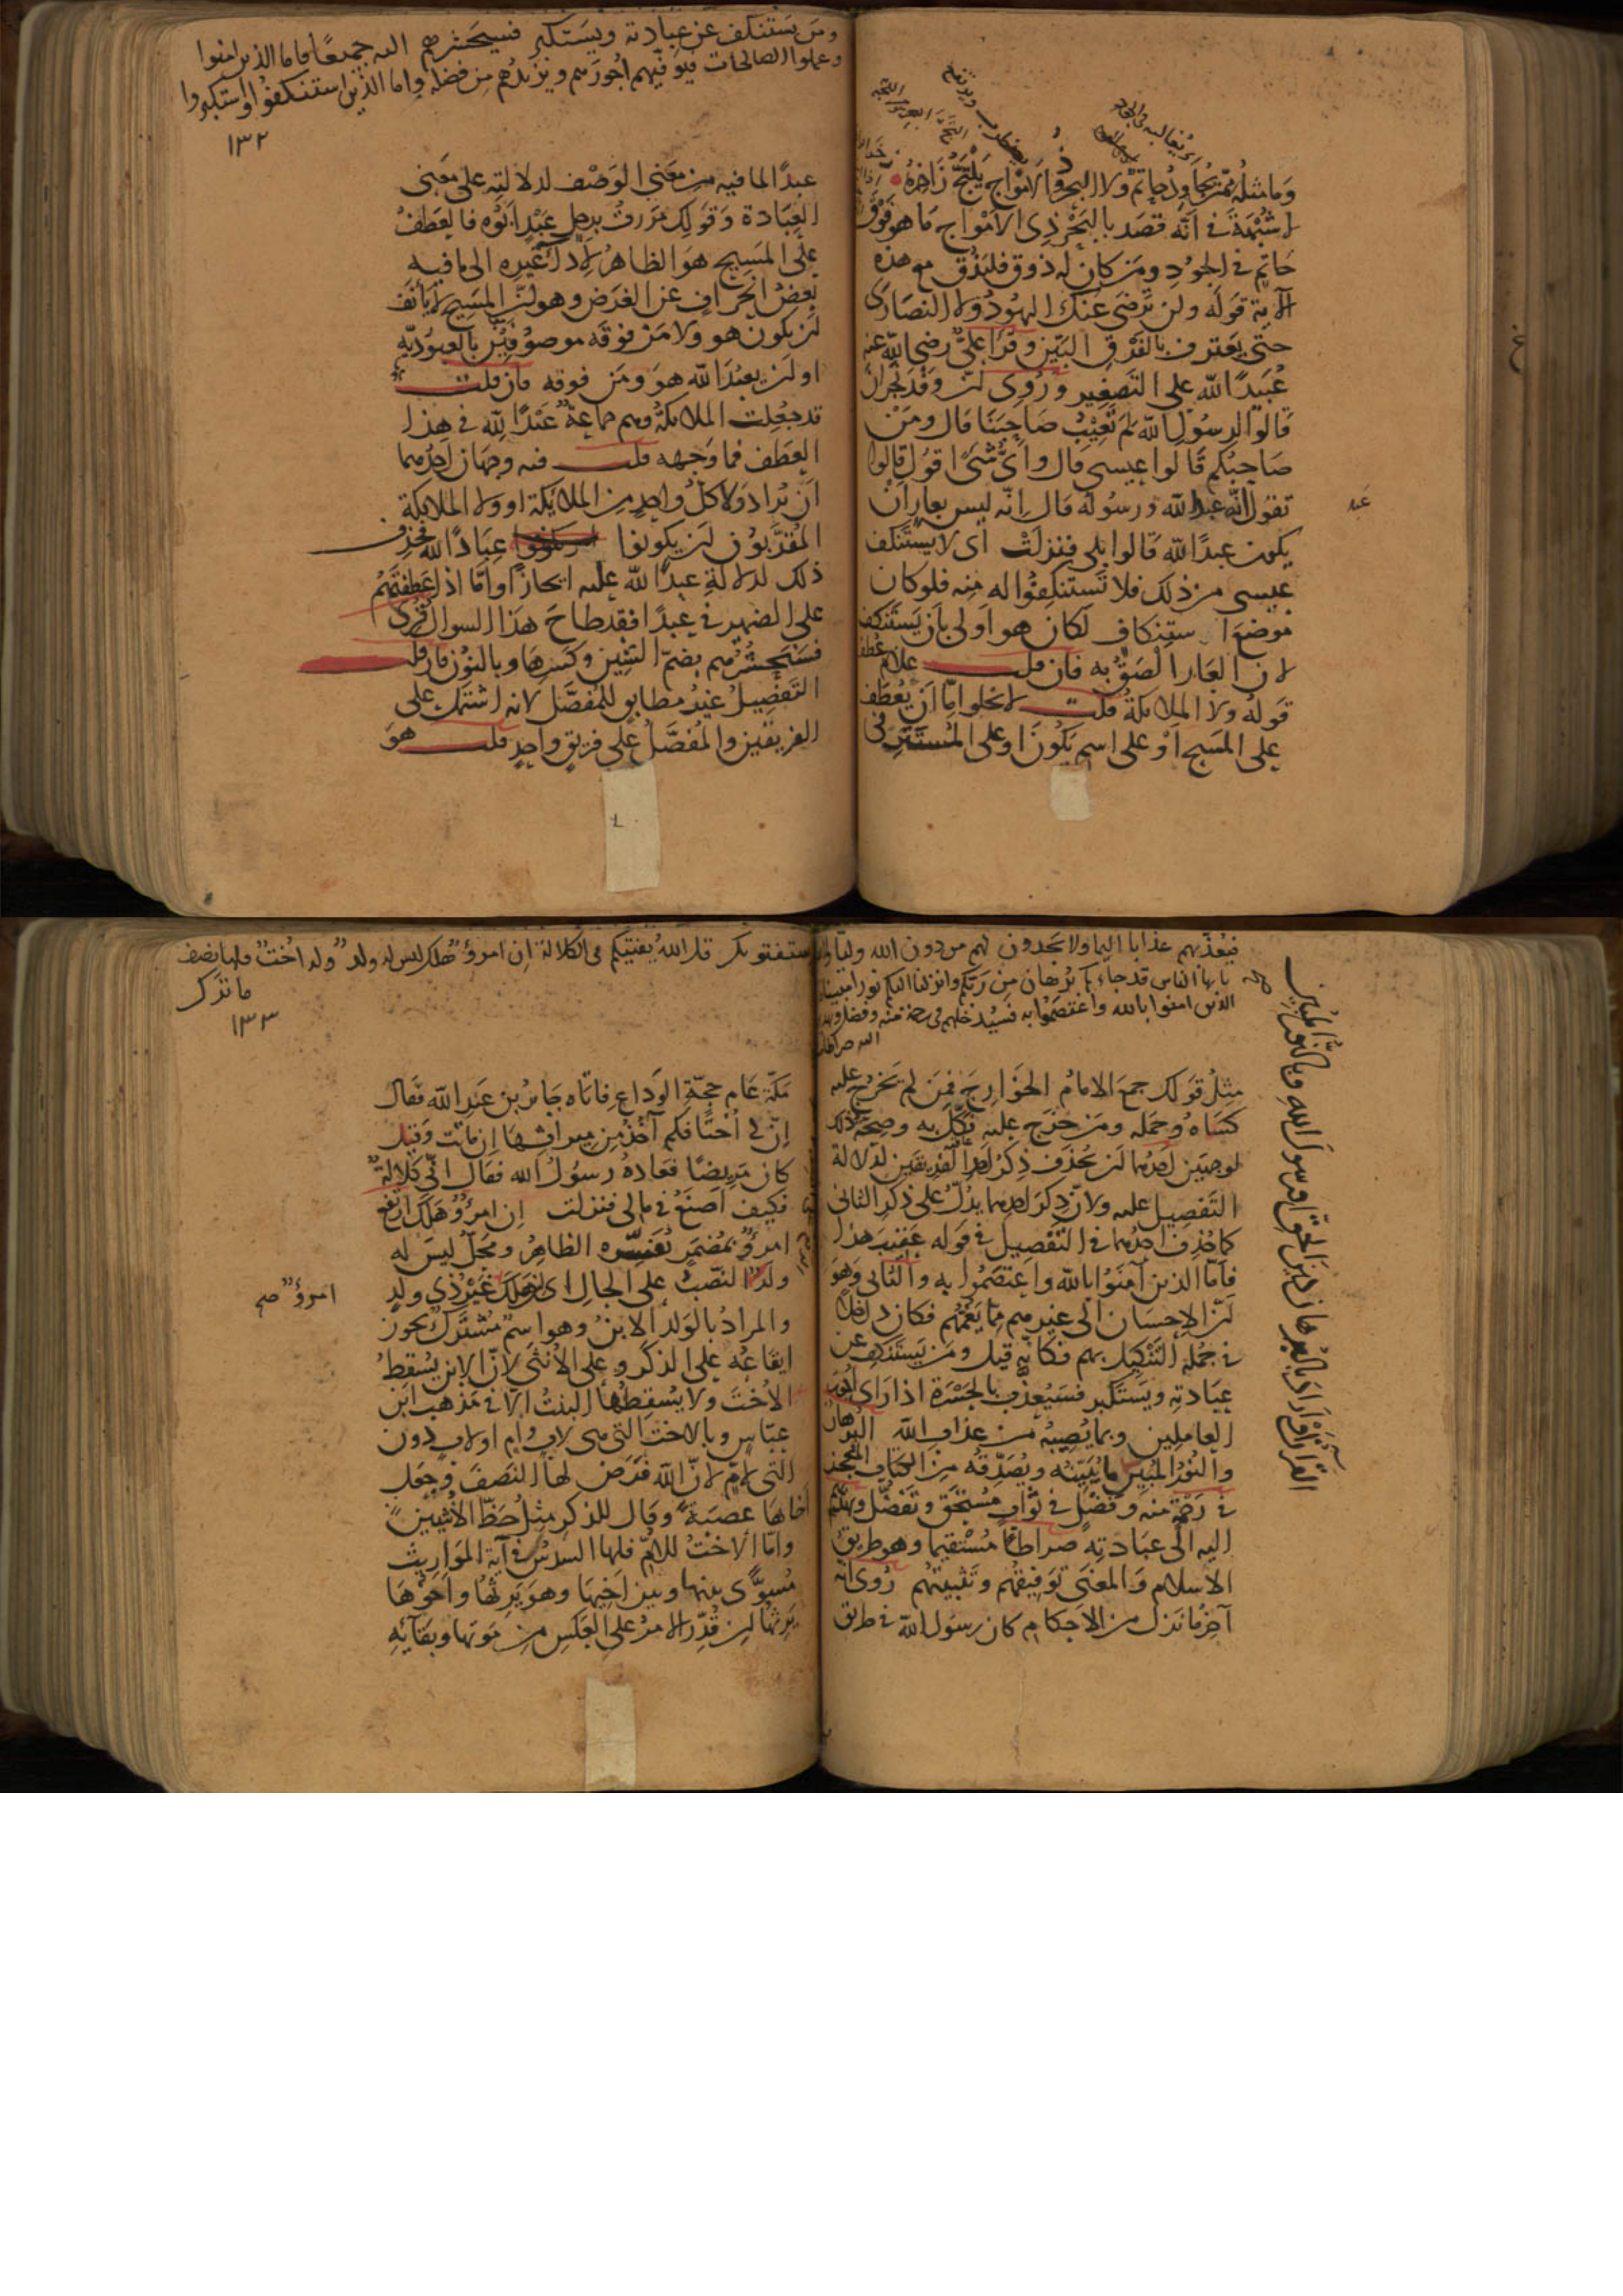 وما مثله ممن يجاود حاتم ولا البحر ذو الامواج يلتج زاخره
لا شبهة في انه قصد بالبحر ذي الامواج ما هو فوق
حاتم في الجود ومن كان له ذوق فليذق مع هذه
الآية قوله ولن ترضى عنك اليهود ولا النصارى
حتى يعترف بالفرق البين وقرا علي رضي الله عنه
عبيدا لله على التصغير وروى ان وفد نجران
قالوا لرسول الله لم تعيب صاحبنا قال ومن
صاحبكم قالوا عيسى قال واي شيء اقول قالوا
تقول انه عبد الله ورسوله قال انه ليس بعار ان
عبد
يكون عبدا لله قالوا بلى فنزلت اى لا يستنكف
عيسى من ذلك فلا تستنكفوا له منه فلو كان
موضع استنكاف لكان هو اولى بان يستنكف
لان العار الصق به فان قلت علام عطف
قوله ولا الملائكة قلت لا يخلوا اما ان يعطف
على المسيح او على اسم يكون او على المستتر في
ومن يستنكف عن عبادته ويستكبر فسيحشرهم اليه جميعا فاما الذين امنوا
وعملوا الصالحات فيوفيهم اجورهم ويزيدهم من فضله واما الذين استنكفوا واستكبروا
١٣٢
عبدا لما فيه من معنى الوصف لدلالته على معنى
العبادة وقولك مررت برجل عبد ابوه فالعطف
على المسيح هو الظاهر لاداء غيره الى ما فيه
بعض انحراف عن الغرض وهو ان المسيح لا يأنف
ان يكون هو ولا من فوقه موصوفين بالعبودية
او ان يعبد الله هو ومن فوقه فان قلت
قد جعلت الملائكة وهم جماعة عبدا لله في هذا
العطف فما وجهه قلت فيه وجهان احدهما
ان يراد ولا كل واحد من الملائكة او ولا الملائكة
المقربون ان يكونوا عبادا لله فحذف
ذلك لدلالة عبدا لله عليه ايجازا واما اذا عطفتهم
على الضمير في عبدا فقد طاح هذا السوال قرى
فسنحشرهم بضم الشين وكسرها وبالنون فان قلت
التفصيل غير مطابق للمفصل لانه اشتمل على
الفريقين والمفصل على فريق واحد قلت هو
فيعذبهم عذابا اليما ولا يجدون لهم من دون الله وليا
يا يها الناس قد جاءكم برهان من ربكم وانزلنا اليكم نورا مبينا
الذين امنوا بالله واعتصموا به فسيدخلهم في رحمة منه وفضل
مثل قولك جمع الامام الخوارج فمن لم يخرج عليه
كساه وحمله ومن خرج عليه نكل به وصحة ذلك
لوجهين احدهما ان يحذف ذكر احد الفريقين لدلالة
التفصيل عليه ولان ذكر احدهما يدل على ذكر الثاني
كما حذف احدهما في التفصيل في قوله عقيب هذا
فاما الذين آمنوا بالله واعتصموا به والثاني وهو
ان الاحسان الى غيرهم مما يغمهم فكان داخلا
في جملة التنكيل بهم فكانه قيل ومن يستنكف عن
عبادته ويستكبر فسيعذب بالحسرة اذا راى اجور
العاملين وبما يصيبه من عذاب الله البرهان
والنور المبين ما يبينه ويصدقه من الكتاب المعجز
في رحمة منه وفضل في ثواب مستحق وتفضل ويهديهم
اليه الى عبادته صراطا مستقيما وهو طريق
الاسلام والمعنى توفيقهم وتثبيتهم روى انه
آخر ما نزل من الاحكام كان رسول الله في طريق
يستفتونك قل الله يفتيكم في الكلالة ان امرؤ هلك ليس له ولد وله اخت فلها نصف
ما ترك
١٣٣
مكة عام حجة الوداع فاتاه جابر بن عبد الله فقال
ان لي اختا فكم آخذ من ميراثها ان ماتت وقيل
كان مريضا فعاده رسول الله فقال اني كلالة
فكيف اصنع في مالي فنزلت ان امرؤ هلك ارتفع
امرؤ بمضمر يفسره الظاهر ومحل ليس له
ولد النصب على الحال اى ان هلك غير ذي ولد
امرؤ صح
والمراد بالولد الابن وهو اسم مشترك يجوز
ايقاعه على الذكر وعلى الانثى لان الابن يسقط
الاخت ولا يسقطها البنت الا في مذهب ابن
عباس وبالاخت التي هي لاب وام او لاب دون
التي لام لان الله فرض لها النصف وجعل
اخاها عصبة وقال للذكر مثل حظ الانثيين
واما الاخت للام فلها السدس في آية المواريث
مسوى بينها وبين اخيها وهو يرثها واخوها
يرثها ان قدر الامر على العكس من موتها وبقائه